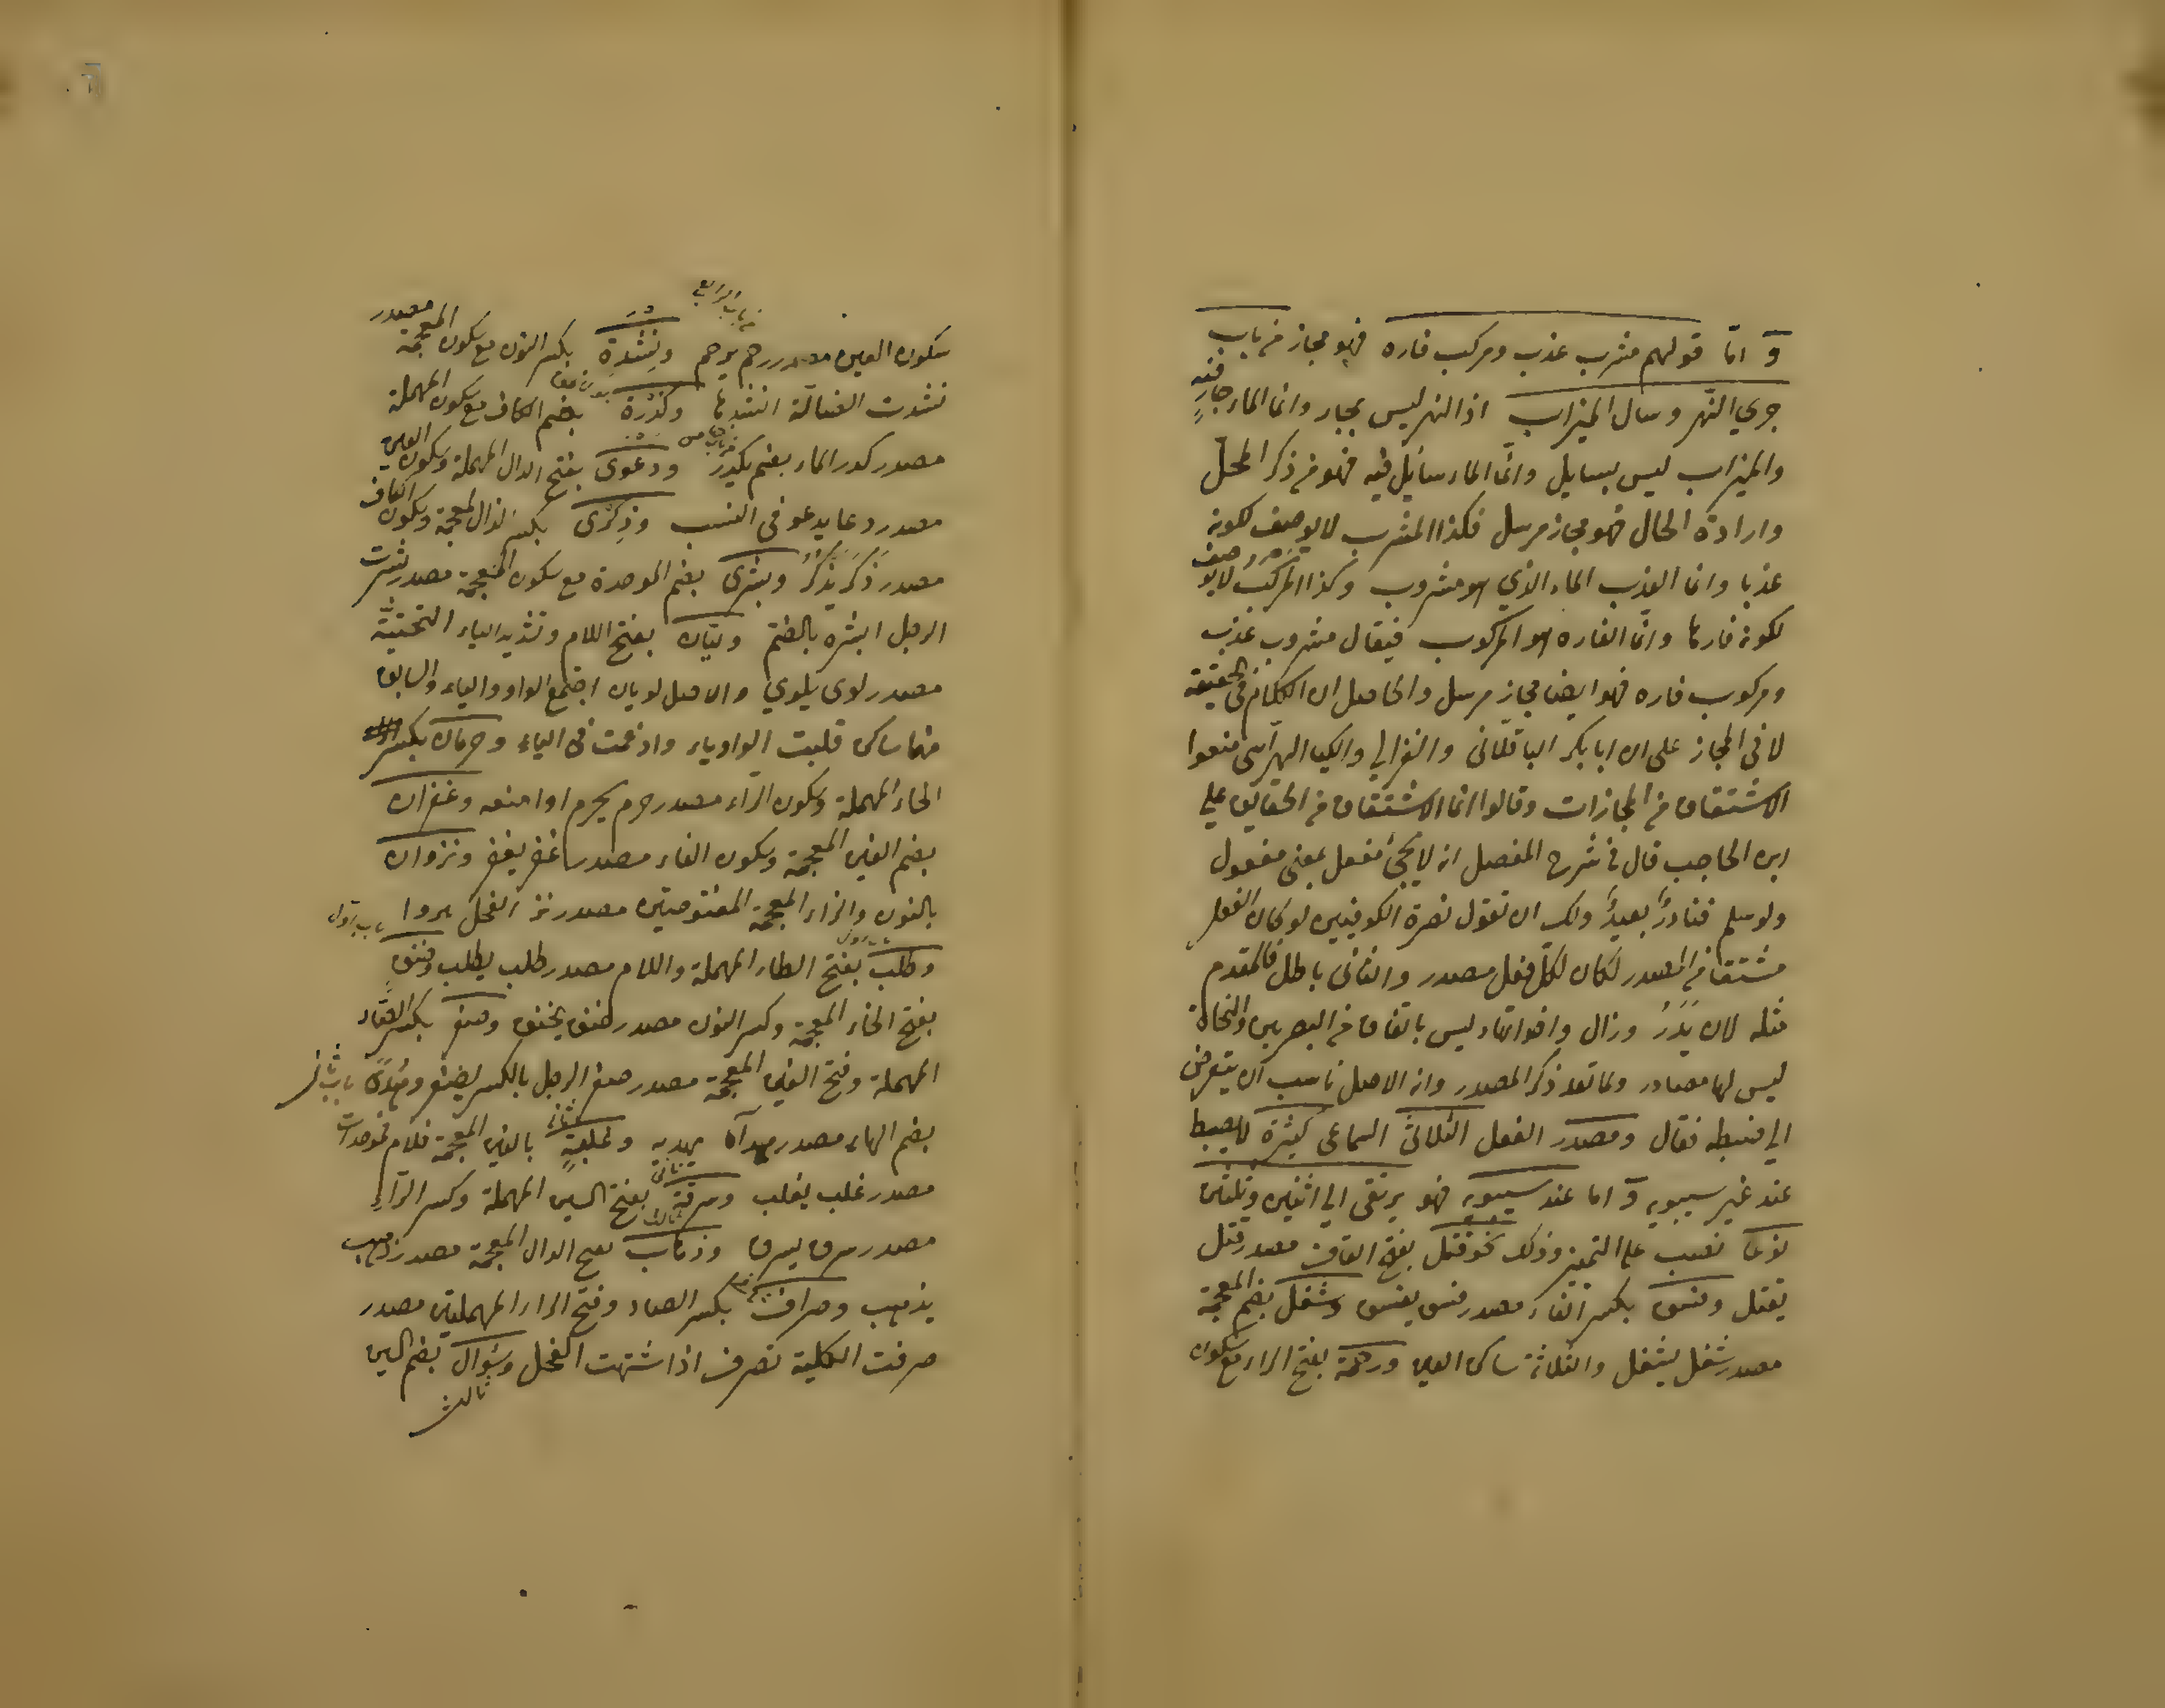 و اما قولهم مشرب عذب ومركب فاره فهو مجاز من باب
جري النهر وسال الميزاب اذ النهر ليس بجار وانما الماء جار فيه
والميزاب ليس بسايل وانما الماء سائل فيه فهو من ذكر المحل
وارادة الحال فهو مجاز مرسل فكذا المشرب لا يوصف لكونه
عذبا وانما العذب الماء الذي هو مشروب وكذا المركب لا يوصف
لكونه فارها وانما الفاره هو المركوب فيقال مشروب عذب
ومركوب فاره فهو ايضا مجاز مرسل والحاصل ان الكلام في الحقيقة
لا في المجاز على ان ابا بكر الباقلاني والغزالي والكيا الهراسي منعوا
الاشتقاق من المجازات وقالوا انما الاشتقاق من الحقايق على
ابن الحاجب قال في شرح المفصل انه لا يجئ مفعل بمعنى مفعول
ولو سلم فنادر بعيد ولك ان تقول نصرة الكوفيين لو كان الفعل
مشتقا من المصدر لكان لكل فعل مصدر والثاني باطل فالمقدم
مثله لان يذر وزال واخواتها ليس باتفاق من البصريين والنحاة
ليس لها مصادر ولما تعد ذكر المصدر وانه الاصل ناسب ان يتعرض
الي ضبطه فقال ومصدر الفعل الثلاثي السماعى كثيرة لا يضبط
عند غير سيبويه و اما عند سيبويه فهو يرتقى الي اثنين وثلثين
نوعا نصب على التميز وذلك نحو قتل بفتح القاف مصدر قتل
يقتل وفسق بكسر الفاء مصدر فسق يفسق وشغل بضم المعجمة
مصدر شغل يشغل والثلاثة ساكن العين ورحمة بفتح الراء مع سكون
من باب الرابع
سكون العين مصدر رحم يرحم ونشدة بكسر النون مع سكون المعجمة مصدر
نشدت الضالة انشدها وكدرة بضم الكاف مع سكون المهملة
مصدر كدر الماء بضم يكدر ودعوى بفتح الدال المهملة وسكون العين
مصدر دعا يدعو في النسب وذكرى بكسر الذال المعجمة وسكون الكاف
مصدر ذكر يذكر وبشرى بضم الموحدة مع سكون المعجمة مصدر بشرت
الرجل ابشره بالضم وليان بفتح اللام وتشديد الياء التحتية
مصدر لوى يلوي والاصل لويان اجتمع الواو والياء والسابق
منهما ساكن قلبت الواو ياء وادغمت في الياء وحرمان بكسر
الحاء المهملة وسكون الراء مصدر حرم يحرم اوا منعه وغفران
بضم الغين المعجمة وسكون الفاء مصدر غفر يغفر ونزوان
بالنون والزاء المعجمة المفتوحتين مصدر نز الفحل
وطلب بفتح الطاء المهملة واللام مصدر طلب يطلب وخنق
بفتح الخاء المعجمة وكسر النون مصدر خنق يخنق وصغر بكسر الصاد
المهملة وفتح الغين المعجمة مصدر صغر الرجل بالكسر يصغر وهدى
بضم الهاء مصدر هداه يهديه وغلبة بالغين المعجمة فلام فموحدات
مصدر غلب يغلب وسرقة بفتح السين المهملة وكسر الراء
مصدر سرق يسرق وذهاب بفتح الدال المعجمة مصدر ذهب
يذهب وصراف بكسر الصاد وفتح الراء المهملتين مصدر
صرفت الكلبة تصرف اذا اشتهت الفحل وسؤال بضم السين
ثالث